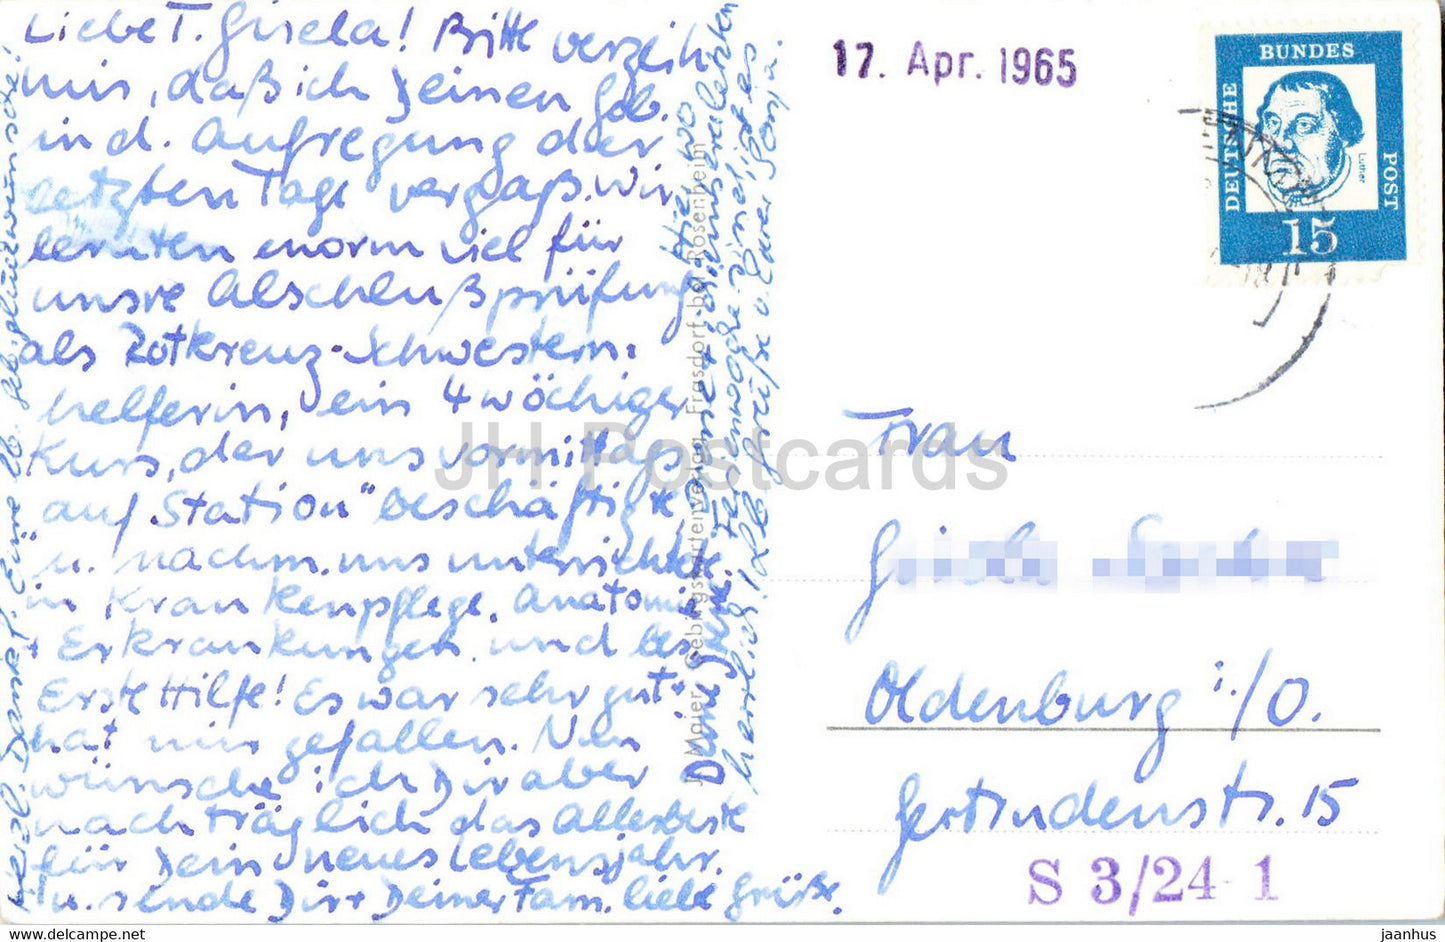 Liebe T. Gisela! Bitte verzeih
mir, daß ich Deinen Geb.
in d. Aufregung der
letzten Tage vergaß. Wir
lernten enorm viel für
unsre Abschlußprüfung
als Rotkreuz-Schwestern-
helferin, ein 4 wöchiger
Kurs, der uns vormittags
"auf Station" beschäftigte
u. nachm. uns unterrichtete
in Krankenpflege, Anatomie
+ Erkrankungen und bes.
Erste Hilfe! Es war sehr gut +
hat mir gefallen. Nun
wünsche ich Dir aber
nachträglich das Allerbeste
für Dein neues Lebensjahr.
u. sende Dir + Deiner Fam. liebe Grüße.
Herzl. Dank f. Eure lb. Geb.glückwünsche!
Deine
Hier wo
unsere letzten
Ferienwoche
ist es
herrlich! Lb. Grüße v. Eurer Sonja.
J. Maier, Gebirgskartenverlag, Frasdorf bei Rosenheim
17. Apr. 1965
DEUTSCHE
BUNDES
POST
Luther
15
Frau
Gisela
Oldenburg i./O.
Gertrudenstr. 15
S 3/24 1
JH Postcards
www.delcampe.net
jaanhus